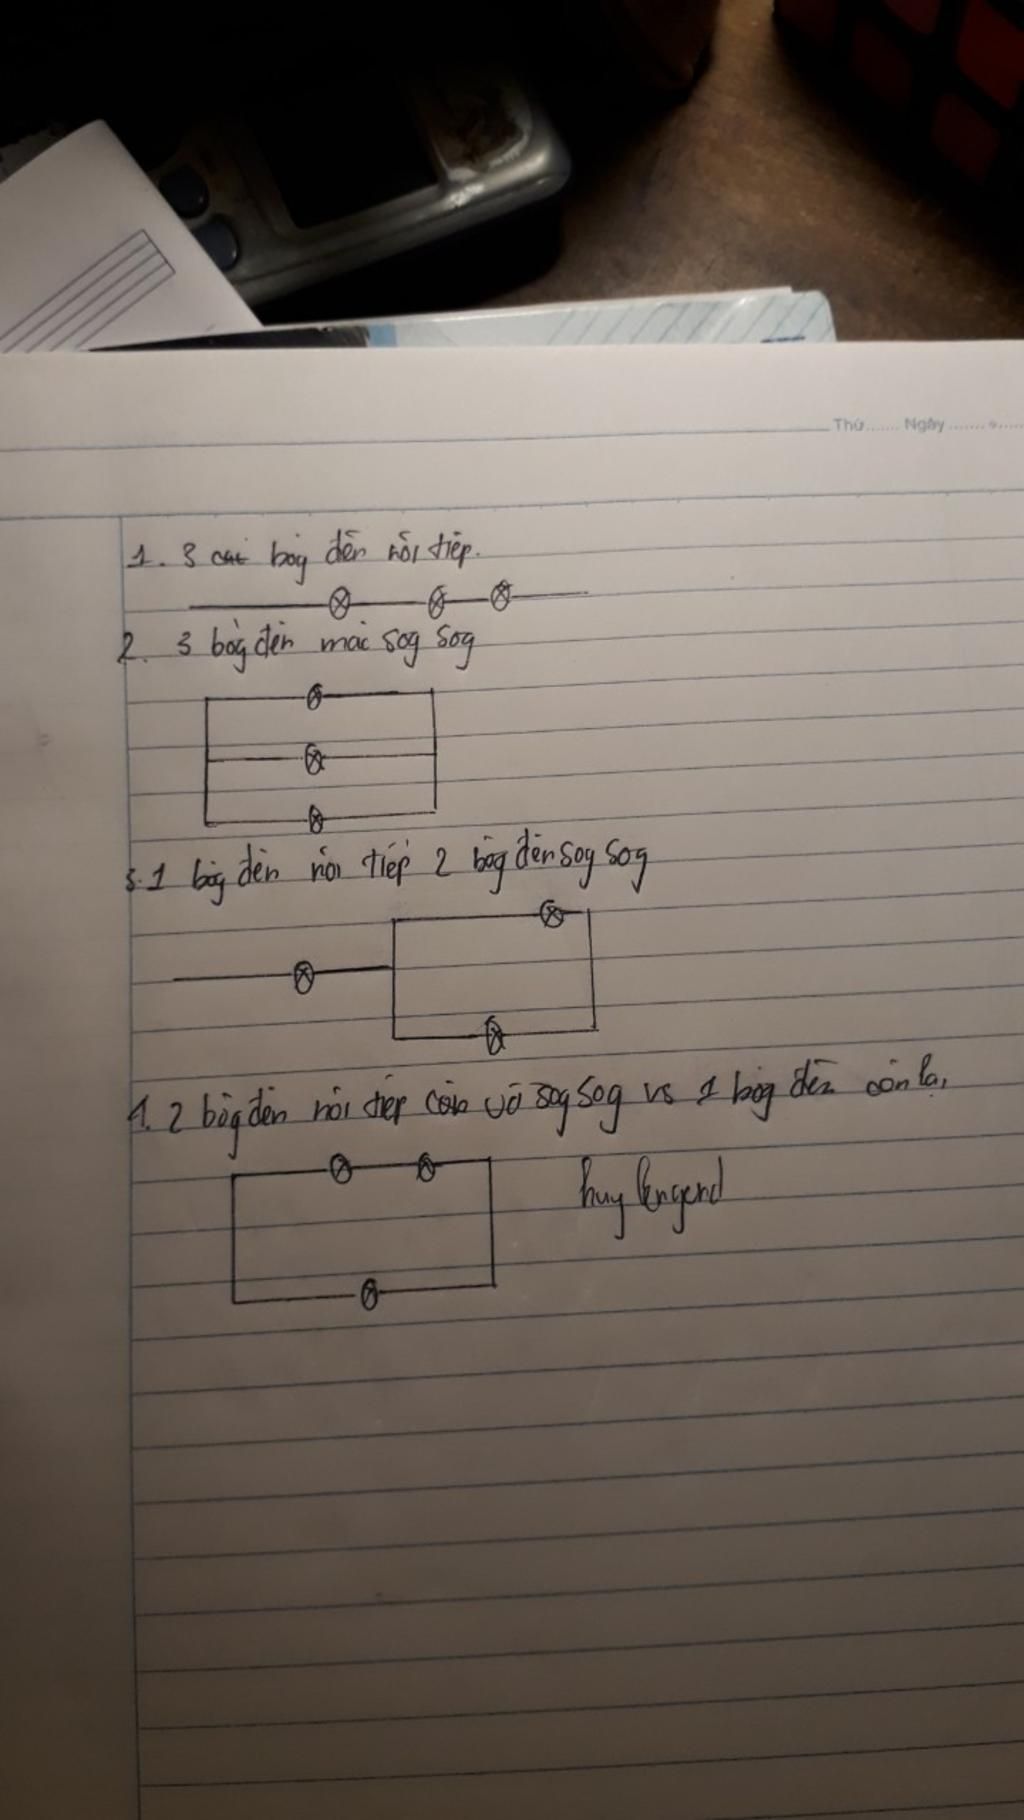 Thứ....... Ngày
1. 3 bóg đèn nối tiếp.
2. 3 bóg đèn mắc sog sog
3. 1 bóg đèn nối tiếp 2 bóg đèn sog sog
4. 2 bóg đèn nối tiếp sog sog vs 1 bóg đèn còn lại
huy lengend